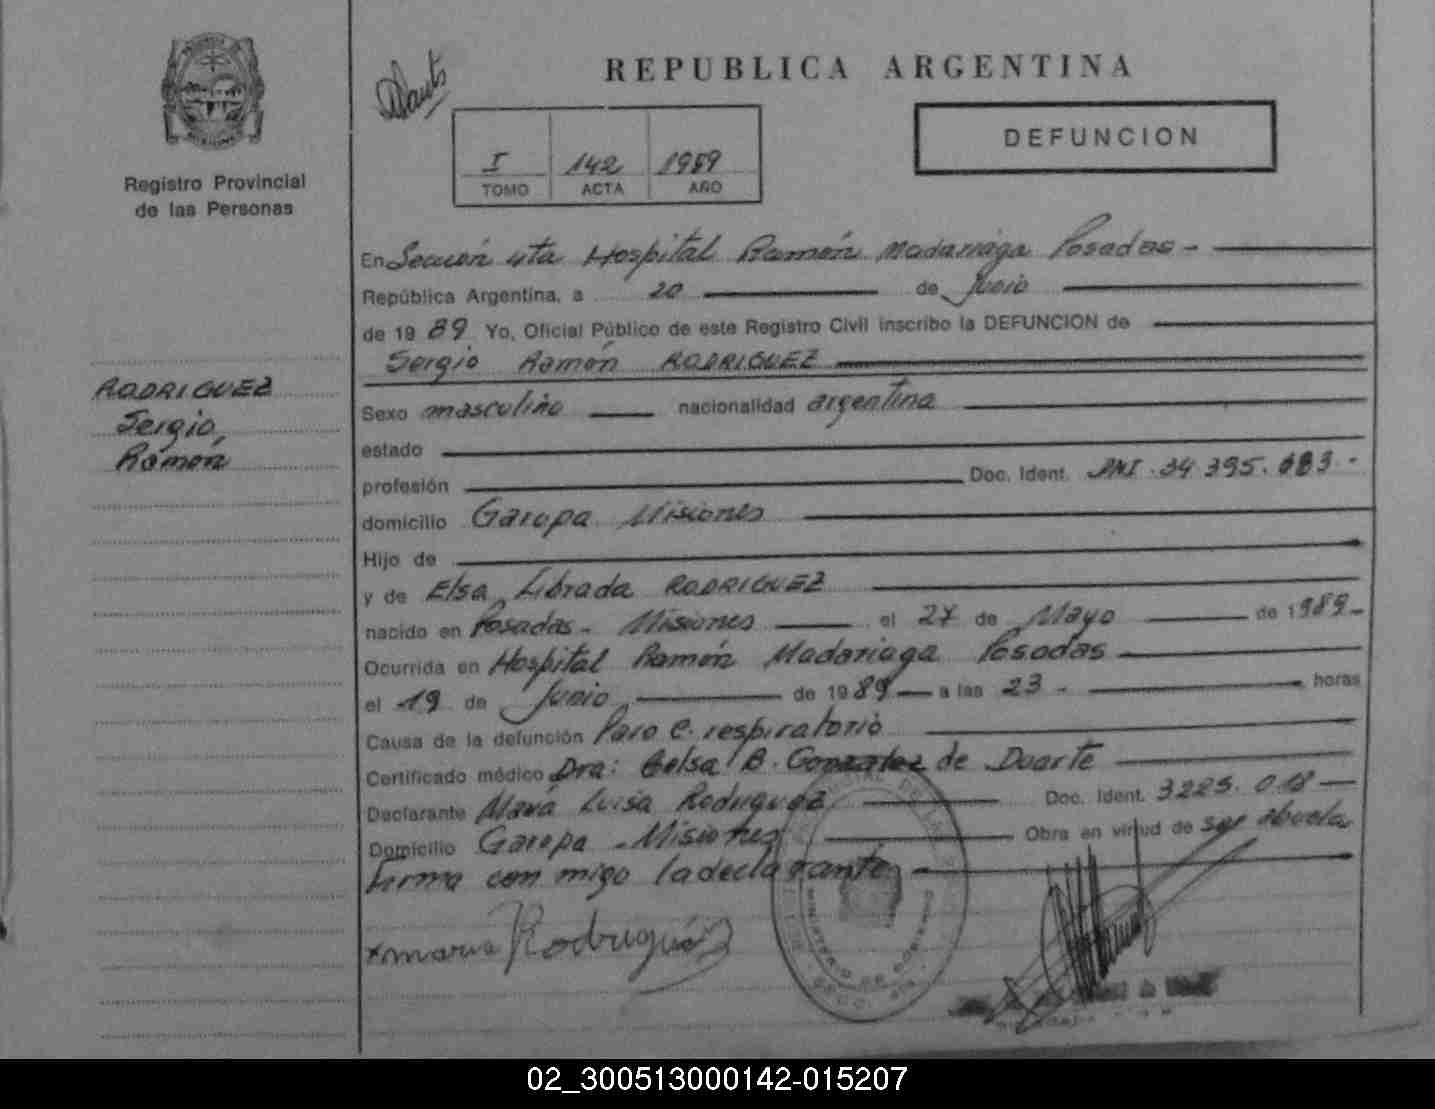 Registro Provincial
de las Personas
RODRIGUEZ
Sergio
Ramón
REPUBLICA ARGENTINA
DEFUNCION
I 142 1989
TOMO ACTA AÑO
En Sección 4ta Hospital Ramón Madariaga Posadas -
República Argentina, a 20 de Junio
de 19 89 Yo, Oficial Público de este Registro Civil inscribo la DEFUNCION de
Sergio Ramón RODRIGUEZ
Sexo masculino nacionalidad argentina
estado
profesión Doc. Ident. DNI 34 395.
domicilio Garupa Misiones
Hijo de
y de Elsa Librada RODRIGUEZ
nacido en Posadas - Misiones el 27 de Mayo de 1989-
Ocurrida en Hospital Ramón Madariaga Posadas
el 19 de Junio de 1989 a las 23 - horas
Causa de la defunción Paro C. respiratorio
Certificado médico Dra: B. Gonzalez de Duarte
Declarante María Luisa Rodriguez Doc. Ident. 3225.018
Domicilio Garupa - Misiones Obra en virtud de ser abuela
firma con migo la declarante
maria Rodriguez
MINISTERIO DE GOBIERNO
02_300513000142-015207